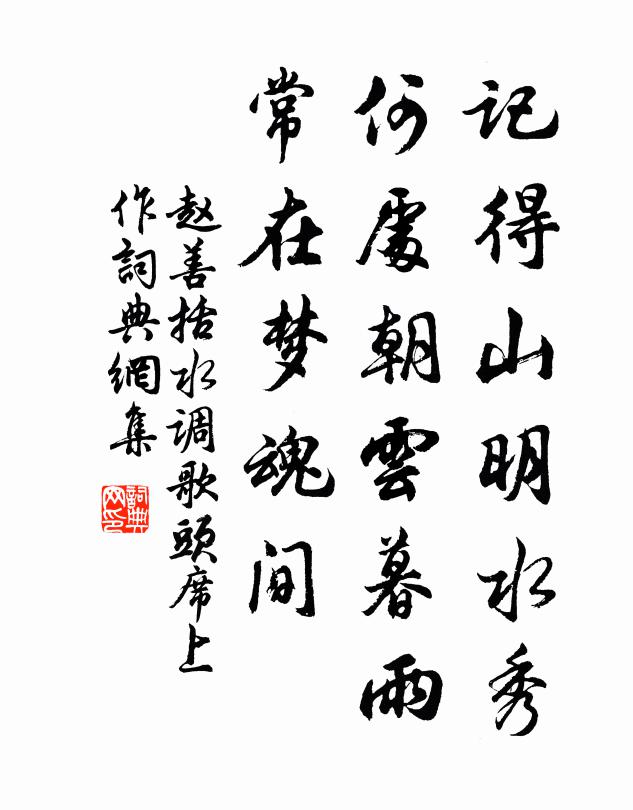 记得山明水秀
何處朝雲暮雨
常在梦魂间
赵善括水调歌頭席上
作詞典網集
詞典
网印